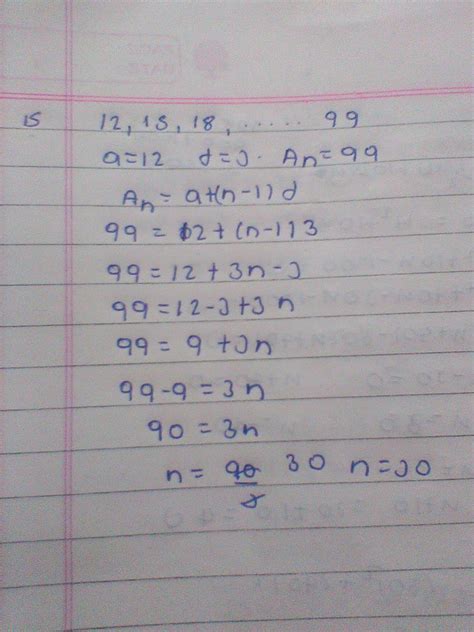 15 12, 15, 18, ..... 99
a=12 d=3. An=99
An = a+(n-1)d
99 = 12 + (n-1)3
99 = 12 + 3n - 3
99 = 12-3+3n
99 = 9 + 3n
99-9 = 3n
90 = 3n
n = 90/3 30 n=30